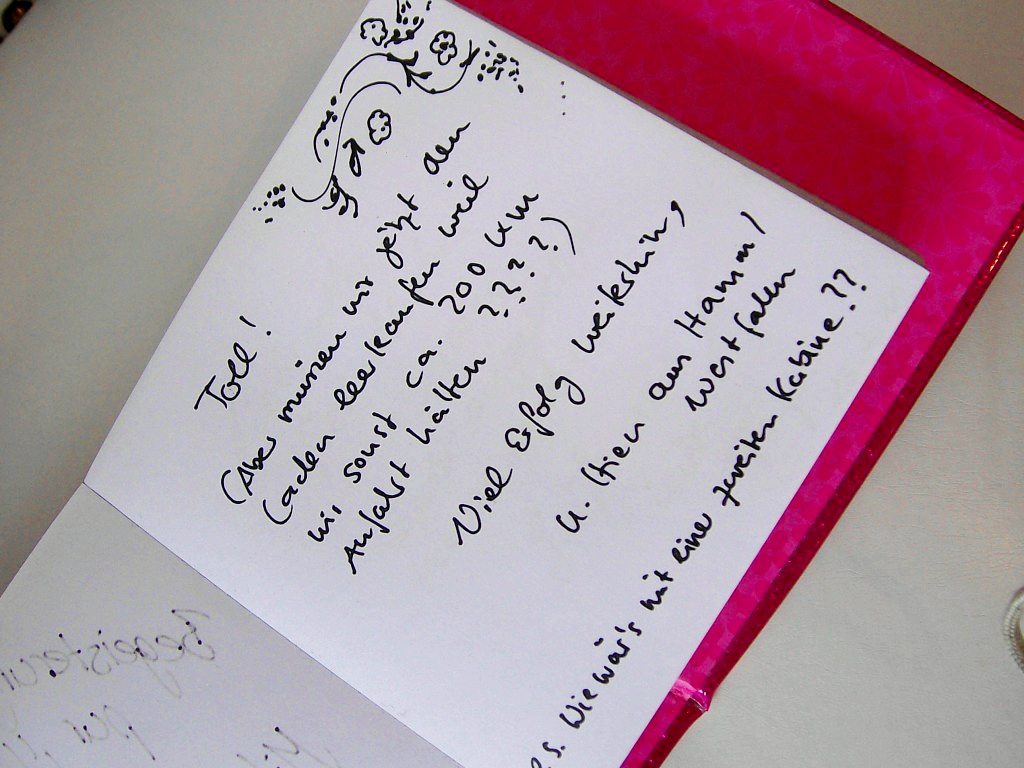 Toll!
(Aber müssen wir jetzt den
Laden leerkaufen weil
wir sonst ca. 200 km
Anfahrt hätten ????)
Viel Erfolg weiterhin,
aus Hamm/
Westfalen
P.S. Wie wär's mit einer zweiten Kabine??
Begeisterun